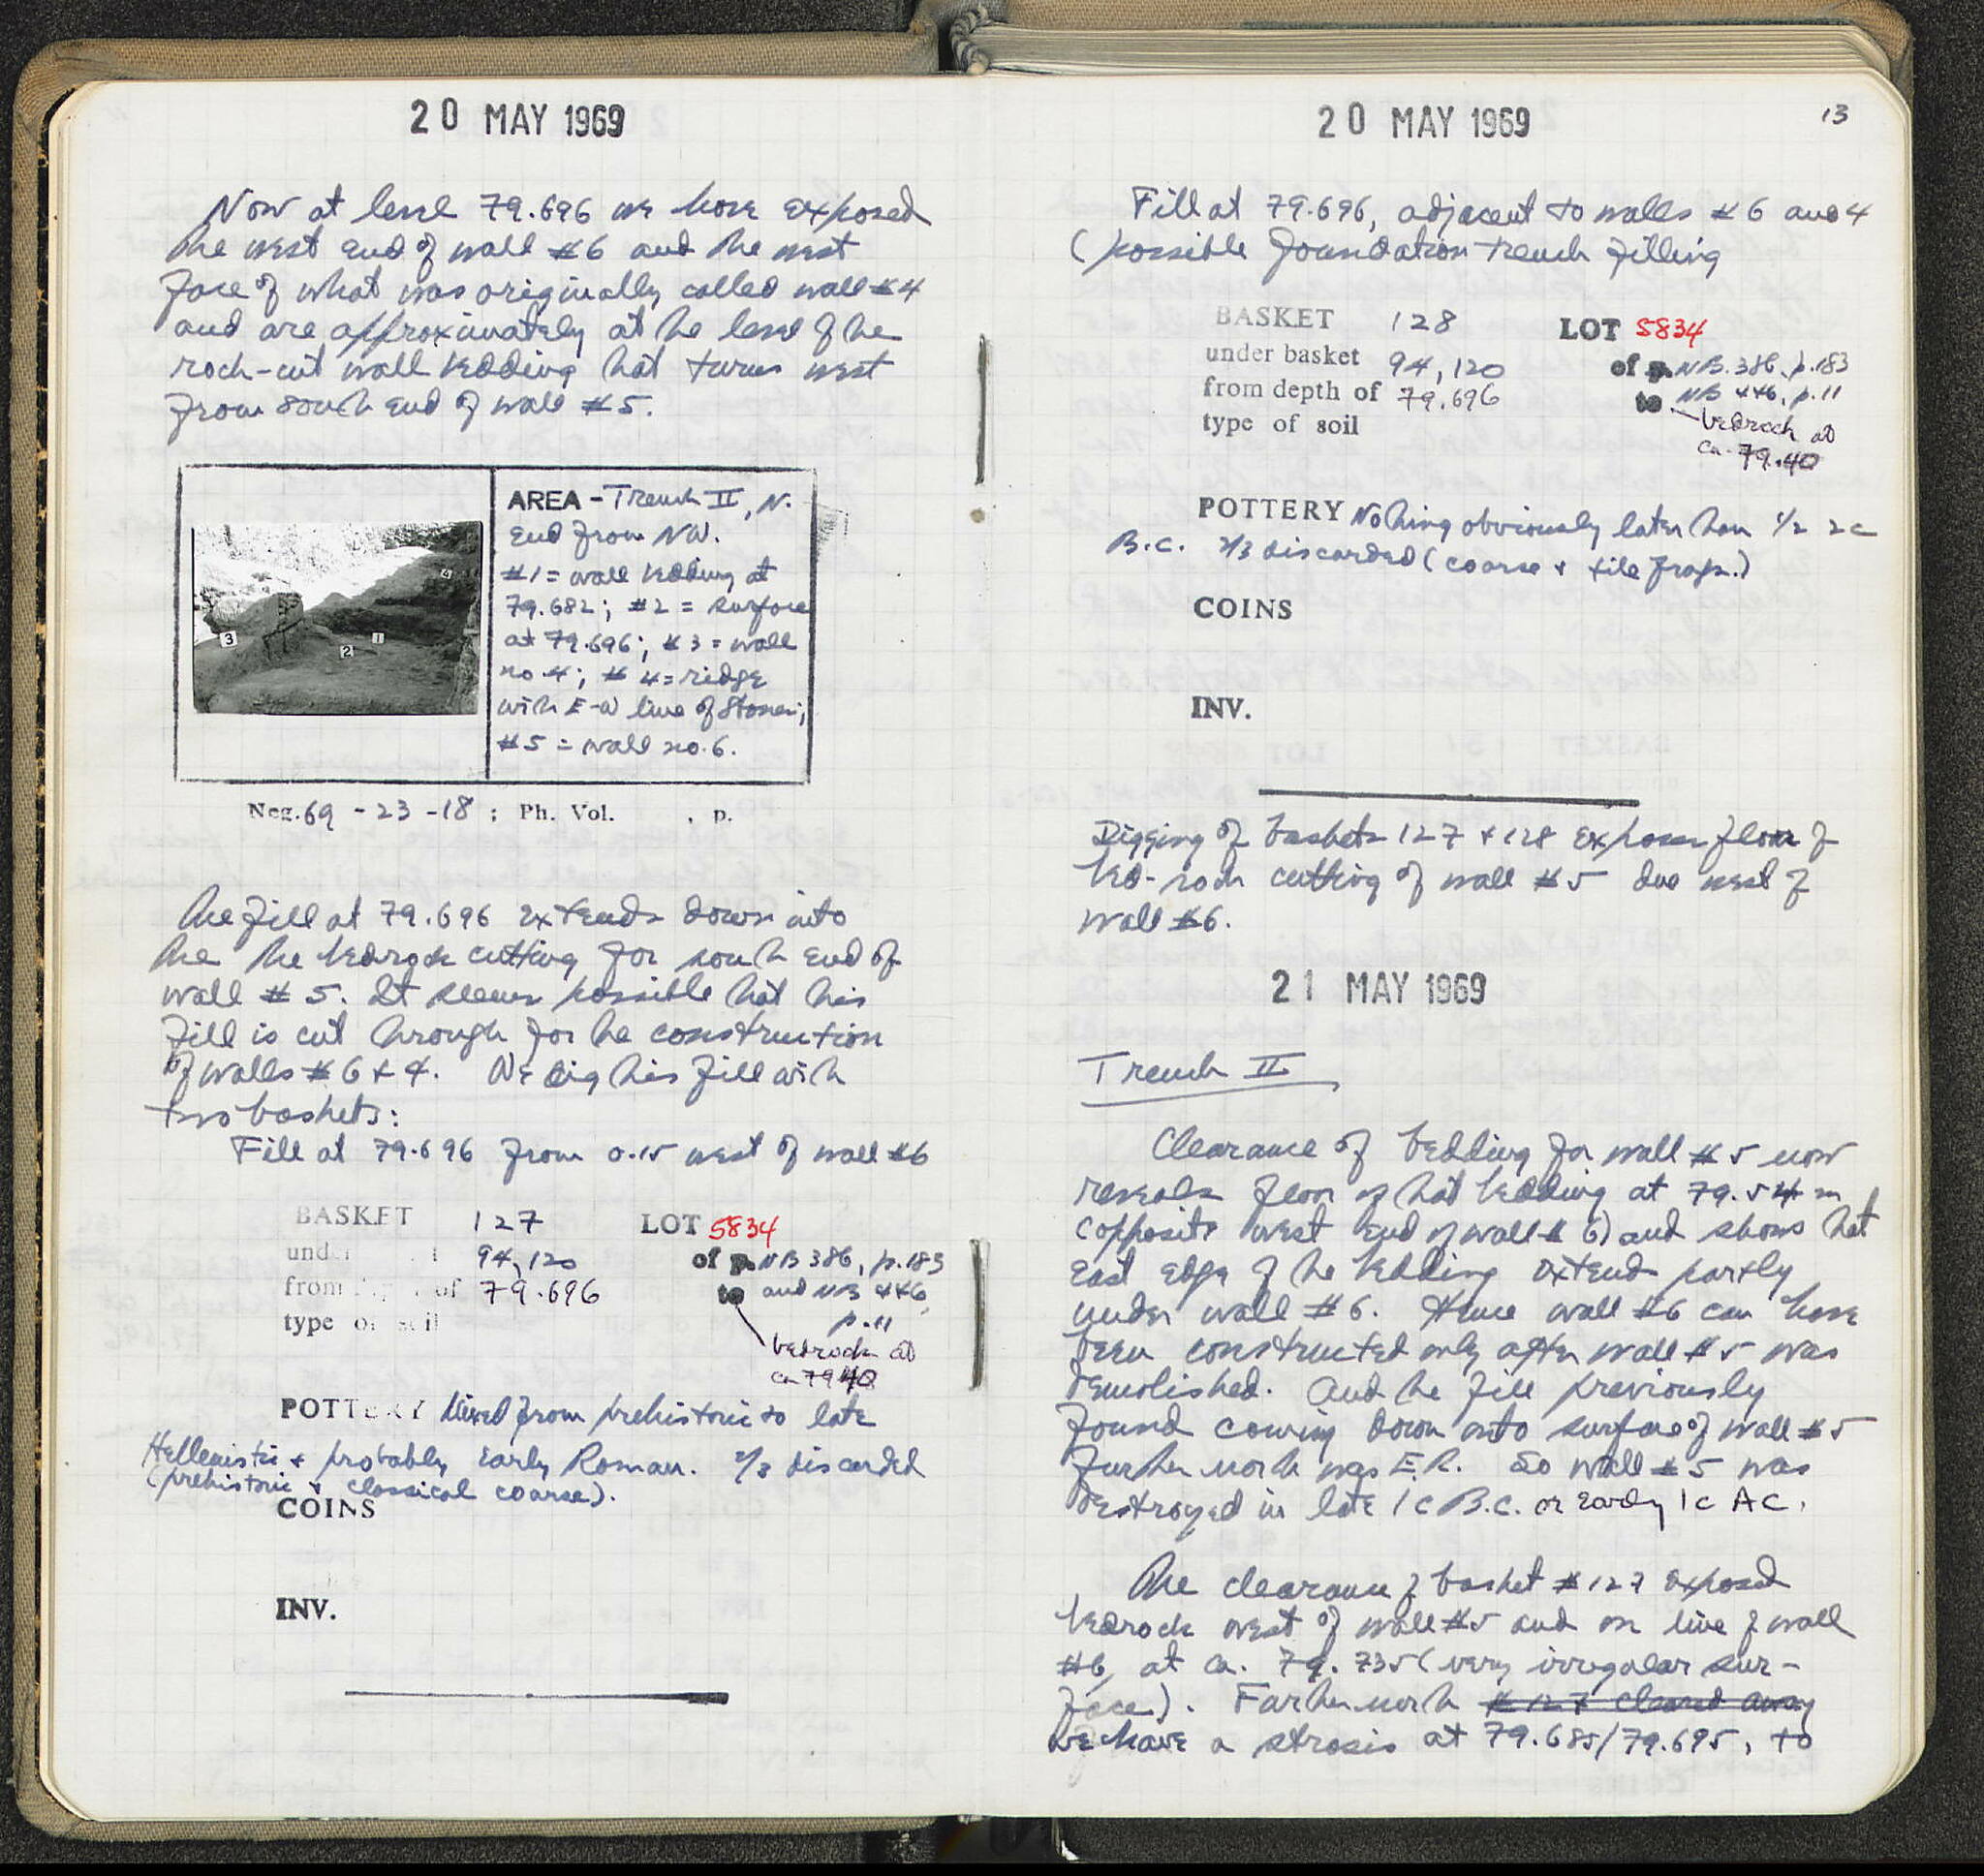 20 MAY 1969
Now at level 79.696 we have exposed
the west end of wall #6 and the west
face of what was originally called wall #4
and are approximately at the level of the
rock-cut wall bedding that turns west
from south end of wall #5.
AREA - Trench II, N.
End from NW.
#1 = wall bedding at
79.682; #2 = surface
at 79.696; #3 = wall
no 4; # 4 = ridge
with E-W line of stones;
#5 = wall no. 6.
3
2
1
4
Neg. 69 - 23 - 18 ; Ph. Vol. , p.
The fill at 79.696 extends down into
the the bedrock cutting for south end of
wall # 5. It seems possible that this
fill is cut through for the construction
of walls #6 + 4. We dig this fill with
two baskets:
Fill at 79.696 from 0.15 west of wall #6
BASKET 127 LOT 5834
under basket 94, 120 of p. NB 386, p. 183
from depth of 79.696 to and NB 446,
type of soil p. 11
bedrock at
ca 79.40
POTTERY Mixed from prehistoric to late
Hellenistic + probably Early Roman. 2/3 discarded
(prehistoric + classical coarse).
COINS
INV.
20 MAY 1969
13
Fill at 79.696, adjacent to walls #6 and 4
(possible foundation trench filling
BASKET 128 LOT 5834
under basket 94, 120 of p. NB. 386, p. 183
from depth of 79.696 to NB 446, p. 11
type of soil bedrock at
ca. 79.40
POTTERY Nothing obviously later than 1/2 2c
B.C. 2/3 discarded (coarse + tile frags.)
COINS
INV.
Digging of baskets 127 + 128 exposes floor of
bed-rock cutting of wall #5 due west of
wall #6.
21 MAY 1969
Trench II
Clearance of bedding for wall #5 now
reveals floor of that bedding at 79.54 m
(opposite west end of wall #6) and shows that
east edge of the bedding extends partly
under wall #6. Hence wall #6 can have
been constructed only after wall #5 was
demolished. And the fill previously
found coming down onto surface of wall #5
further north was E.R. So wall #5 was
destroyed in late 1c B.C. or early 1c AC.
The clearance of basket #127 exposed
bedrock west of wall #5 and on line of wall
#6, at ca. 79.735 (very irregular sur-
face). Farther north # 127 cleared away
we have a strosis at 79.685/79.695, to